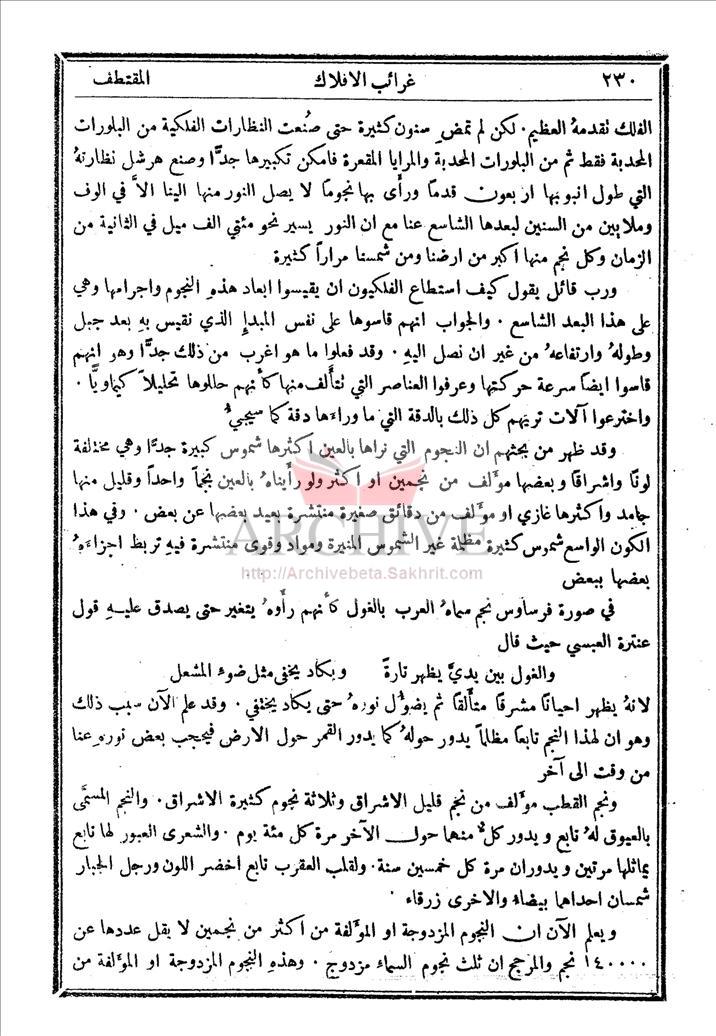 ٢٣٠ غرائب الافلاك المقتطف
الفلك تقدمهُ العظيم. لكن لم تمضِ سنون كثيرة حتى صُنعت النظارات الفلكية من البلورات
المحدبة فقط ثم من البلورات المحدبة والمرايا المقعرة فامكن تكبيرها جدًّا وصنع هرشل نظارتهُ
التي طول انبوبها اربعون قدمًا ورأى بها نجومًا لا يصل النور منها الينا الاَّ في الوف
وملايين من السنين لبعدها الشاسع عنا مع ان النور يسير نحو مئتي الف ميل في الثانية من
الزمان وكل نجم منها اكبر من ارضنا ومن شمسنا مرارًا كثيرة
ورب قائل يقول كيف استطاع الفلكيون ان يقيسوا ابعاد هذه النجوم واجرامها وهي
على هذا البعد الشاسع. والجواب انهم قاسوها على نفس المبدإِ الذي نقيس بهِ بعد جبل
وطولهُ وارتفاعهُ من غير ان نصل اليهِ. وقد فعلوا ما هو اغرب من ذلك جدًّا وهو انهم
قاسوا ايضًا سرعة حركتها وعرفوا العناصر التي تتأَلف منها كأَنهم حللوها تحليلاً كيماويًّا.
واخترعوا آلات تريهم كل ذلك بالدقة التي ما وراءها دقة كما سيجيءُ
وقد ظهر من بحثهم ان النجوم التي نراها بالعين اكثرها شموس كبيرة جدًّا وهي مختلفة
لونًا واشراقًا وبعضها مؤَلف من نجمين او اكثر ولو رأيناهُ بالعين نجمًا واحدًا وقليل منها
جامد واكثرها غازي او مؤَلف من دقائق صغيرة منتشرة بعيد بعضها عن بعض. وفي هذا
الكون الواسع شموس كثيرة مظلمة غير الشموس المنيرة ومواد وقوى منتشرة فيهِ تربط اجزاءَهُ
بعضها ببعض
في صورة فرساوس نجم سماهُ العرب بالغول كأَنهم رأَوهُ يتغير حتى يصدق عليهِ قول
عنترة العبسي حيث قال
والغول بين يديَّ يظهر تارةً ويكاد يخفى مثل ضوءِ المشعل
لانهُ يظهر احيانًا مشرقًا متأَلقًا ثم يضوُّل نورهُ حتى يكاد يختفي. وقد علم الآن سبب ذلك
وهو ان لهذا النجم تابعًا مظلمًا يدور حولهُ كما يدور القمر حول الارض فيحجب بعض نورهِ عنا
من وقت الى آخر
ونجم القطب مؤَلف من نجم قليل الاشراق وثلاثة نجوم كثيرة الاشراق. والنجم المسمَّى
بالعيوق لهُ تابع ويدور كلٌّ منهما حول الآخر مرة كل مئة يوم. والشعرى العبور لها تابع
يماثلها مرتين ويدوران مرة كل خمسين سنة. ولقلب العقرب تابع اخضر اللون ورجل الجبار
شمسان احداها بيضاء والاخرى زرقاء.
ويعلم الآن ان النجوم المزدوجة او المؤَلفة من اكثر من نجمين لا يقل عددها عن
١٤٠٠٠٠ نجم والمرجح ان ثلث نجوم السماء مزدوج. وهذهِ النجوم المزدوجة او المؤَلفة من
ARCHIVE
http://Archivebeta.Sakhrit.com